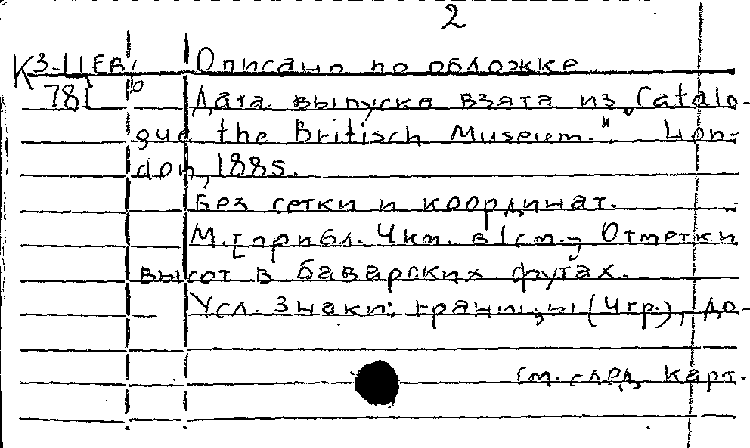 2
К 3-11 ЕВ/6 Описано по обложке
78 Дата выпуска взята из „Catalo-
gue the Britisch Museum." Lon-
don, 1885.
Без сетки и координат.
М. [прибл. 4 км. в 1 см.] Отметки
высот в баварских футах.
Усл. знаки: границы (4 гр.), до-
см. след. карт.